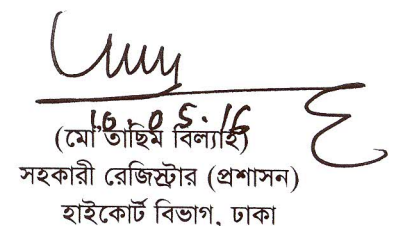 10.05.16
(মো'তাছিম বিল্যাহ)
সহকারী রেজিস্ট্রার (প্রশাসন)
হাইকোর্ট বিভাগ, ঢাকা